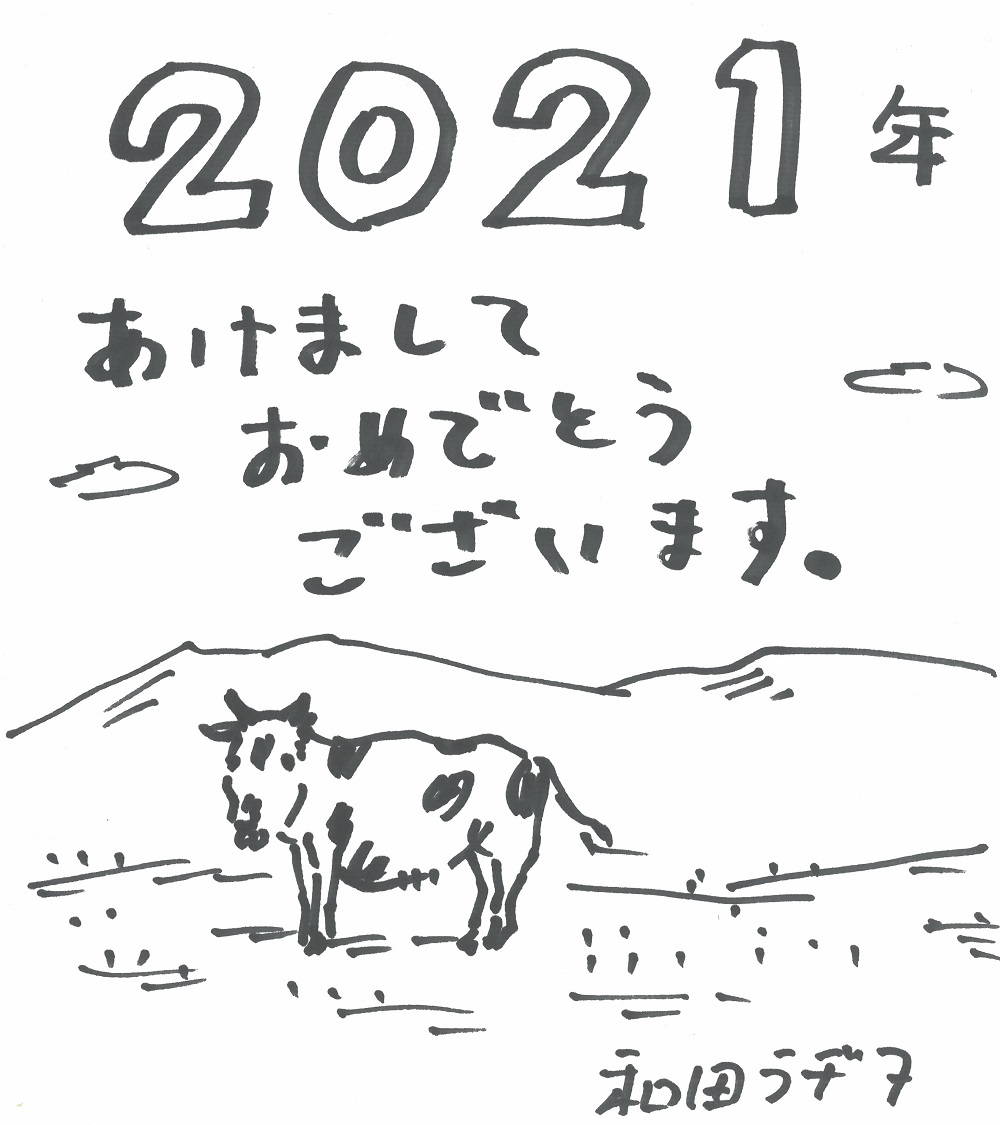 2021年
あけまして
おめでとう
ございます。
和田ラヂヲ